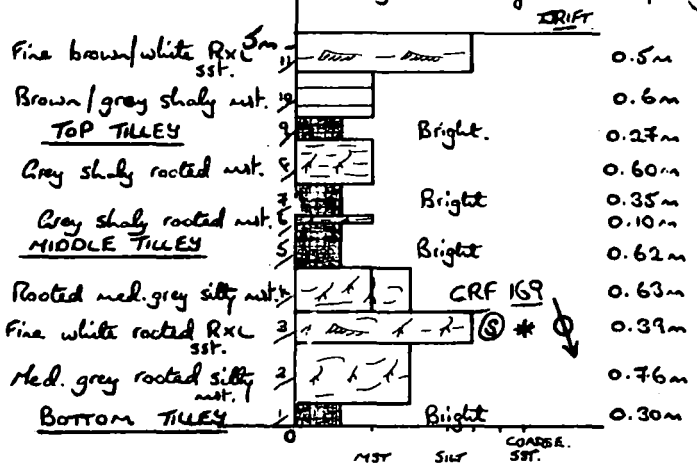 DRIFT
5m
Fine brown/white RxL sst. 11 0.5m
Brown/grey shaly mst. 10 0.6m
TOP TILLEY 9 Bright. 0.27m
Grey shaly rooted mst. 8 0.60m
7 Bright 0.35m
Grey shaly rooted mst. 6 0.10m
MIDDLE TILLEY 5 Bright 0.62m
Rooted med. grey silty mst. 4 CRF 169 0.63m
Fine white rooted RxL sst. 3 S * 0.39m
Med. grey rooted silty mst. 2 0.76m
BOTTOM TILLEY 1 Bright 0.30m
0
MST SILT COARSE. SST.